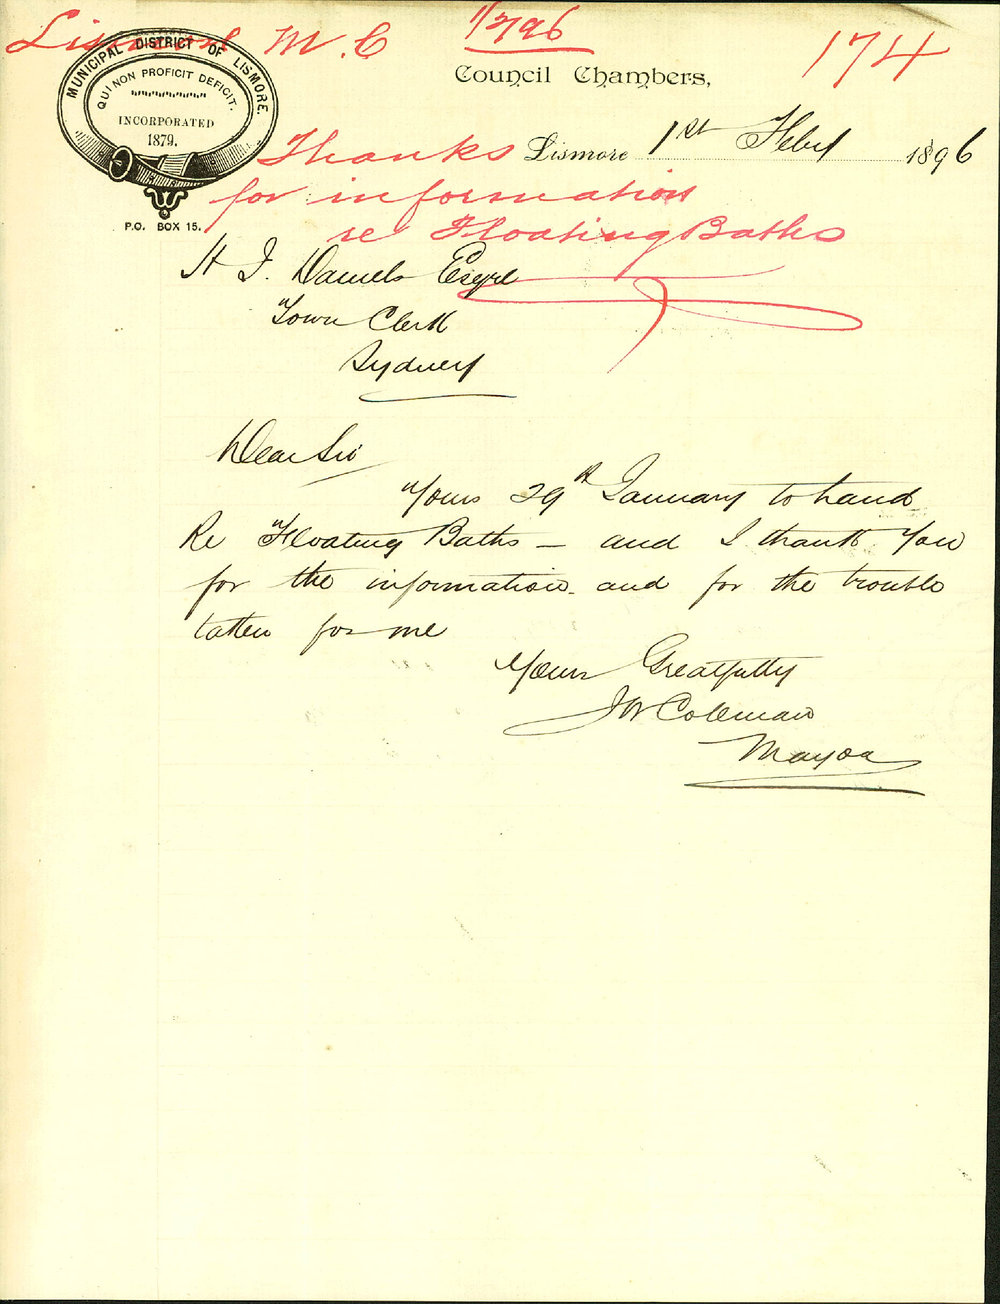 Lismore M.C
1/2/96
174
MUNICIPAL DISTRICT OF LISMORE.
QUI NON PROFICIT DEFICIT.
INCORPORATED
1879.
P.O. BOX 15.
Council Chambers,
Lismore 1st Feby 1896
Thanks
for information
re Floating Baths
H. J. Daniels Esqre
Town Clerk
Sydney
Dear Sir
Yours 29th January to hand
Re Floating Baths — and I thank You
for the information and for the trouble
taken for me
Yours Greatfully
JW Coleman
Mayor